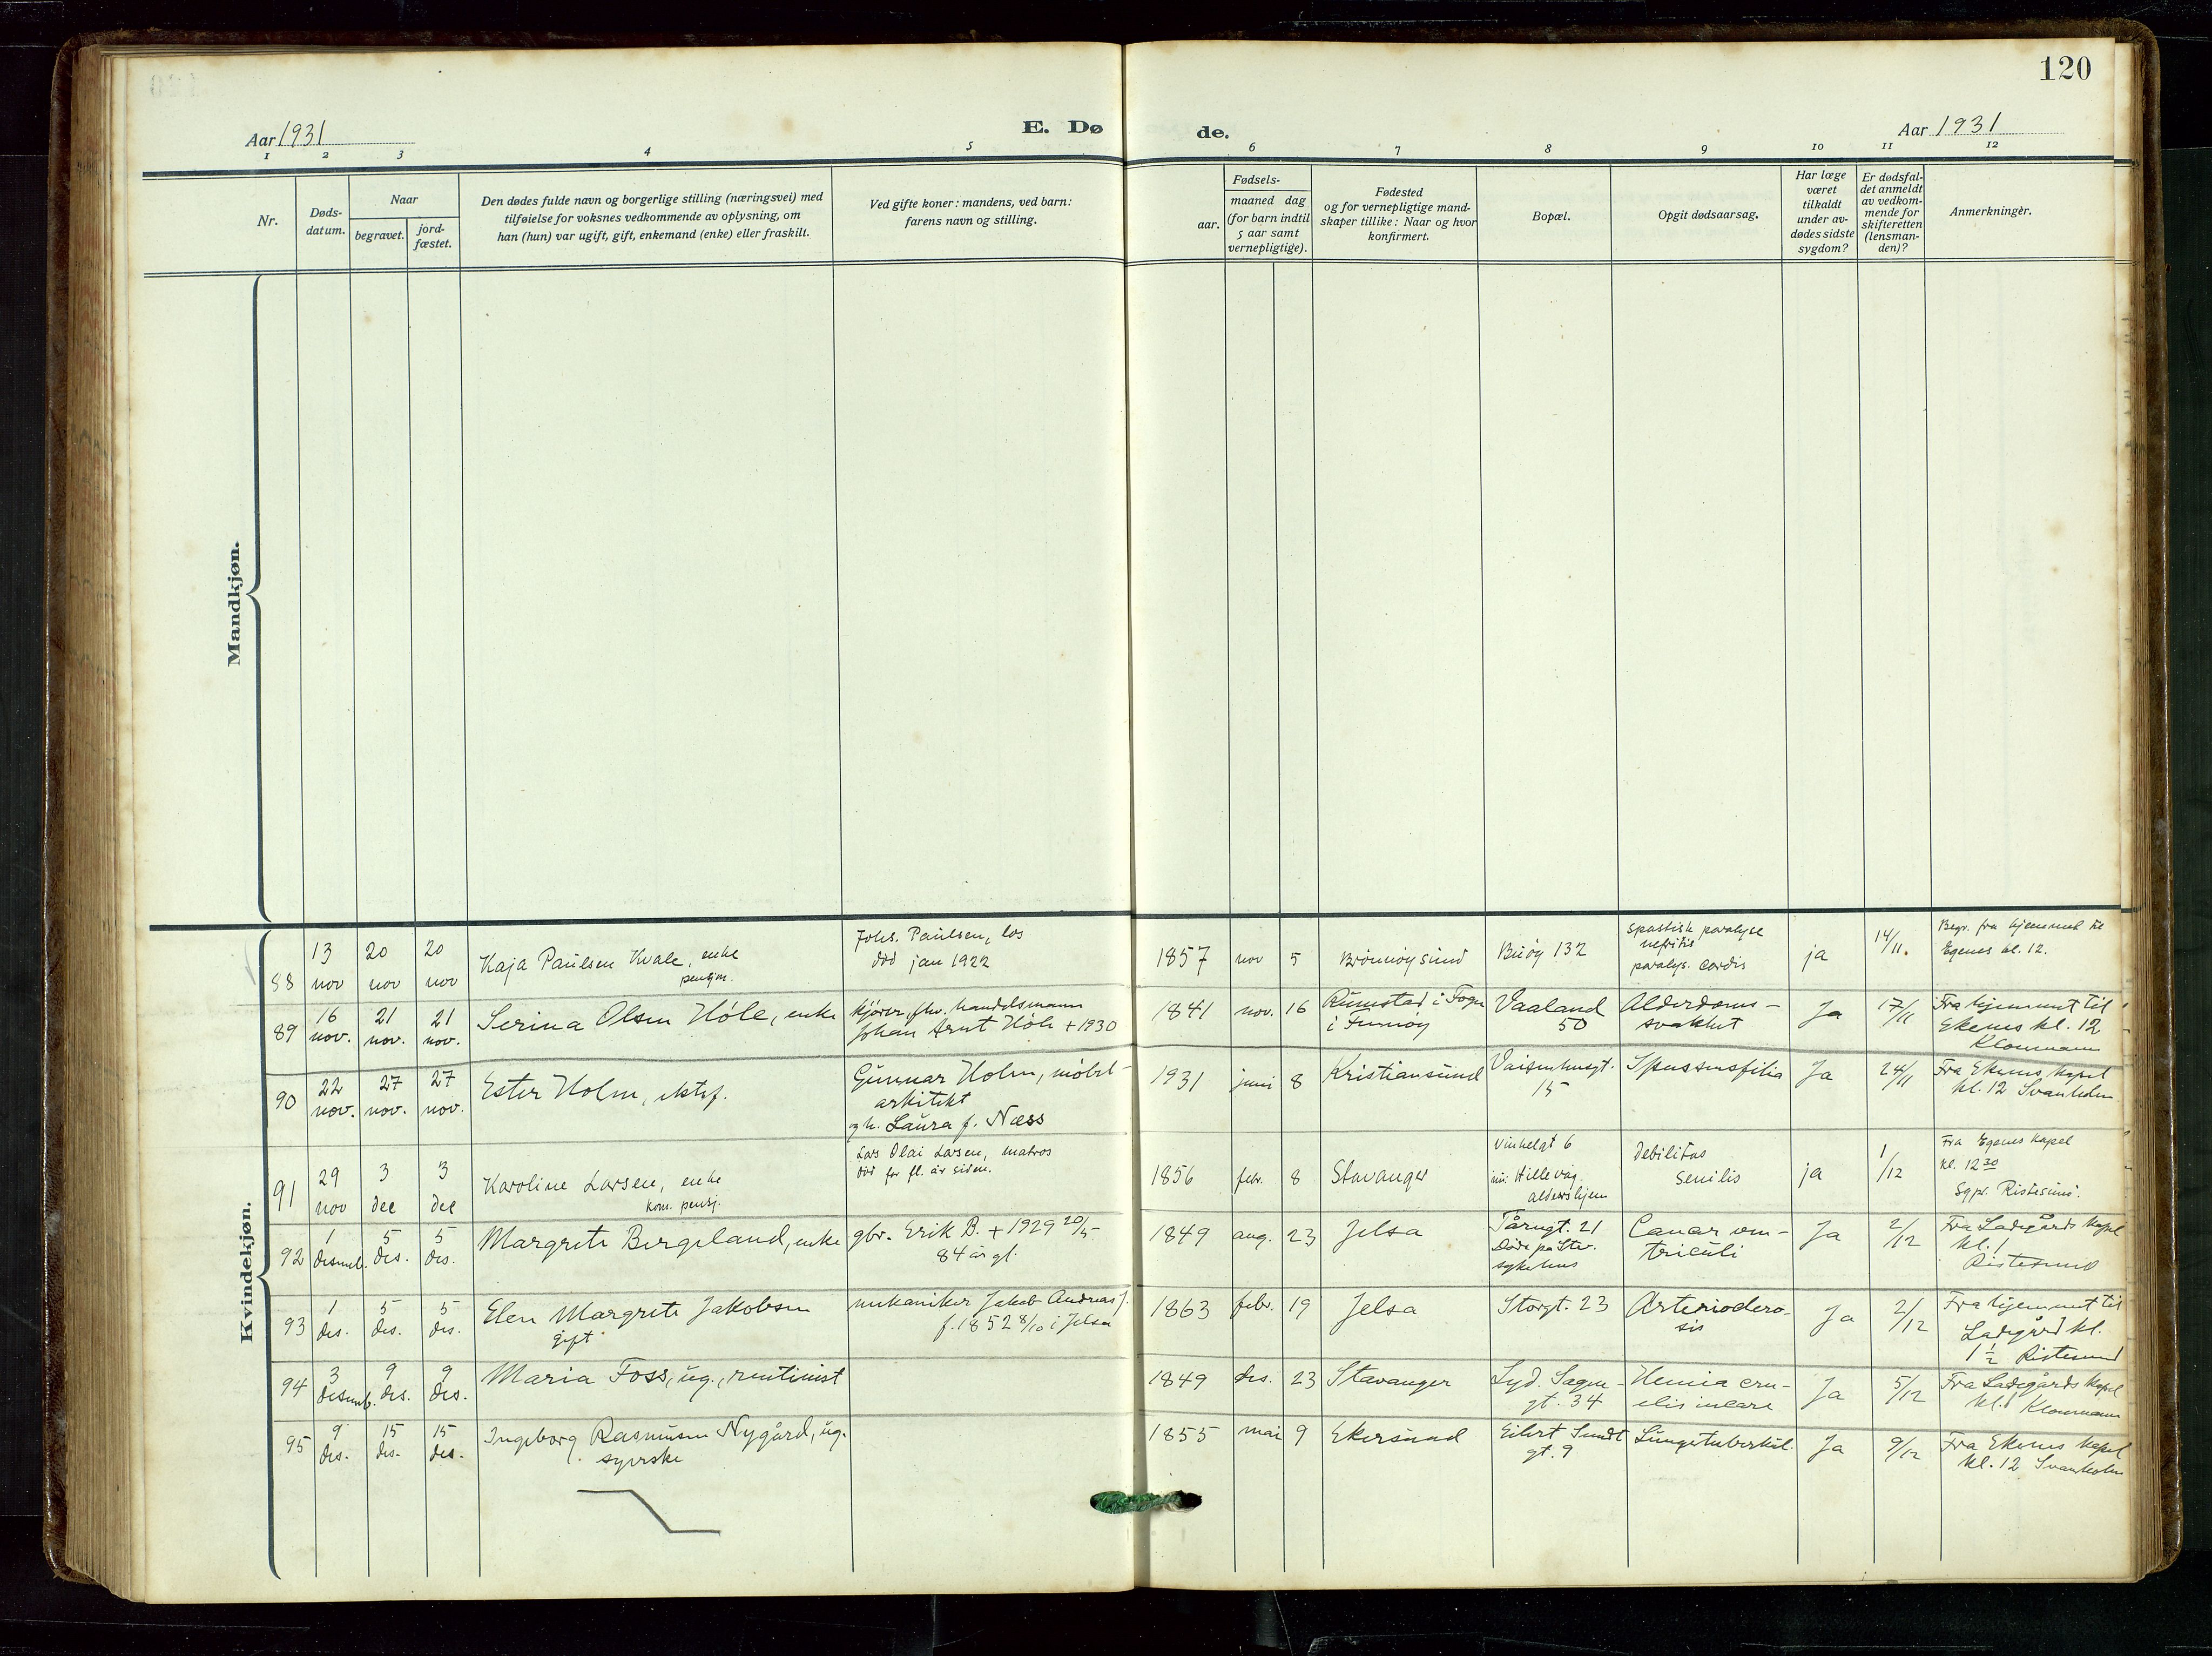 120
Aar 1931
E. Dø
de.
Aar 1931
1 2 3 4 5 6 7 8 9 10 11 12
Nr.
Døds-
datum.
Naar
begravet.
jord-
fæstet.
Den dødes fulde navn og borgerlige stilling (næringsvei) med
tilføielse for voksnes vedkommende av oplysning, om
han (hun) var ugift, gift, enkemand (enke) eller fraskilt.
Ved gifte koner: mandens, ved barn:
farens navn og stilling.
aar.
Fødsels-
maaned dag
(for barn indtil
5 aar samt
vernepligtige).
Fødested
og for vernepligtige mand-
skaper tillike: Naar og hvor
konfirmert.
Bopæl.
Opgit dødsaarsag.
Har læge
været
tilkaldt
under av-
dødes sidste
sygdom?
Er dødsfal-
det anmeldt
av vedkom-
mende for
skifteretten
(lensman-
den)?
Anmerkninger.
Mandkjøn.
Kvindekjøn.
88
13
nov
20
nov
20
nov
Kaja Paulsen Kvale, enke
pensjon.
Johs. Paulsen, los
död jan 1922
1857
nov
5
Brönnöysund
Buöy 132
Spastisk paralyse
nefritis
paralys. cordis
ja
14/11.
Begr. fra hjemmet til
Egenes kl. 12.
89
16
nov.
21
nov.
21
nov.
Serina Olsen Höle, enke
kjörer, fhv. handelsmann
Johan Arnt Höle + 1930
1841
nov.
16
i Finnöy
Vaaland
50
Alderdoms-
svakhet
Ja
17/11
Fra hjemmet til
Ekenes kl. 12
Klovmann
90
22
nov.
27
nov.
27
nov.
Ester Holm, ektef.
Gunnar Holm, möbel-
arkitekt
og h. Laura f. Næss
1931
juni
8
Kristiansund
Vaisenhusgt.
15
Spasmofilia
Ja
24/11
Fra Ekenes kapel
kl. 12 Svanholm
91
29
nov
3
dec
3
dec
Karoline Larsen, enke
kom. pensj.
Lars Olai Larsen, matros
död for fl. år siden.
1856
febr.
8
Stavanger
Vinkelgt 6
Hillevåg
aldershjem
Debilitas
senilis
ja
1/12
Fra Egenes kapel
kl. 12 30
Sgpr. Ristesund.
92
1
desemb.
5
des.
5
des.
Margrete Bergeland, enke
gbr. Erik B. + 1929 20/5
84 år gl.
1849
aug.
23
Jelsa
Tårngt. 21
Döde på Stav.
sykehus
Cancer ven-
triculi
Ja
2/12
Fra Ladegårds kapel
kl. 1
Ristesund
93
1
des.
5
des.
5
des.
Elen Margrete Jakobsen
gift
mekaniker Jakob Andreas J.
f. 1852 8/10 i Jelsa
1863
febr.
19
Jelsa
Storgt. 23
Arteriosclero-
sis
Ja
2/12
Fra hjemmet til
Ladegård kl.
1 1/2 Ristesund
94
3
desemb.
9
des.
9
des.
Maria Foss, ug., rentenist
1849
des.
23
Stavanger
Lyd. Sagen-
gt. 34
Hernia cru-
Ja
5/12
Fra Ladegårds kapel
kl. 1 Klovmann
95
9
des.
15
des.
15
des.
Ingeborg Rasmusen Nygård, ug.
syerske
1855
mai
9
Ekersund
Eilert Sundt
gt. 9
Lungetuberkul.
Ja
9/12
Fra Ekenes kapel
kl. 12 Svanholm